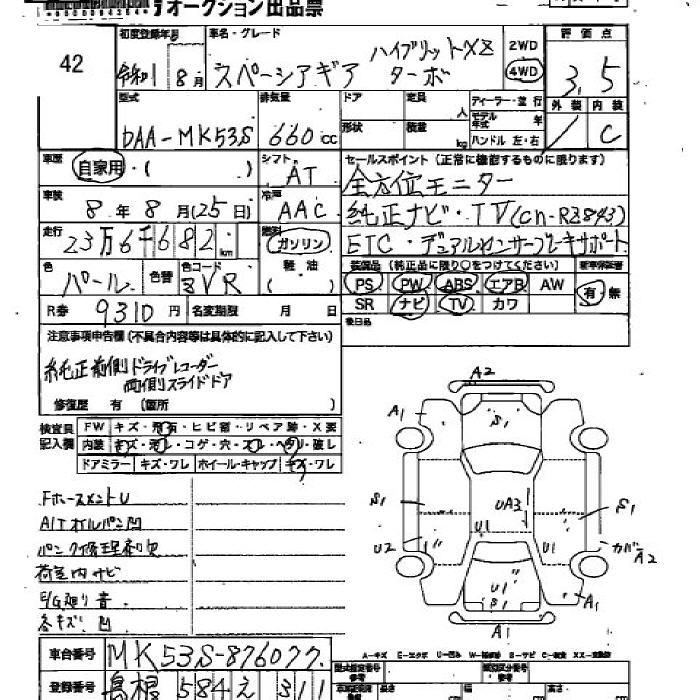 オークション出品票
42
初度登録年月
令和1 8月
車名・グレード
スペーシアギア ハイブリットXZ
ターボ
2WD
4WD
評価点
3.5
外装 内装
C
型式
DAA-MK53S
排気量
660cc
ドア
形状
定員
人
積載
kg
ディーラー・並行
モデル年式 年
ハンドル 左・右
車歴
自家用・( )
シフト
AT
セールスポイント (正常に機能するものに限ります)
全方位モニター
純正ナビ・TV(CN-RZ843)
ETC・デュアルセンサーブレーキサポート
車検
8年8月(25日)
冷房
AAC
走行
23万6千682km
燃料
ガソリン
軽油
( )
色
パール
色替
色コード
ZVR
装備品(純正品に限り○をつけてください)
新車保証書
PS PW ABS エアB AW
SR ナビ TV カワ
有・無
R券 9310円
名変期限 月 日
後日品
注意事項申告欄(不具合内容等は具体的に記入して下さい)
純正前側ドライブレコーダー
両側スライドドア
修復歴 有 (箇所 )
検査員
記入欄
FW キズ・飛石・ヒビ割・リペア跡・X要
内装 キズ・汚レ・コゲ・穴・スレ・ヘタリ・破レ
ドアミラー キズ・ワレ ホイール・キャップ キズ・ワレ
FホースメントU
A/Tオイルパン凹
パンク修理剤欠
荷室内サビ
E/G廻り音
各キズ凹
A2
A1
S1
S1
UA3
S1
U2
U1
U1
カバーA2
U1
S1
A1
A1
車台番号 MK53S-876077
登録番号 島根 584 え 311
型式指定番号
参考
類別区分番号
参考
長さ
cm
幅
cm
高さ
cm